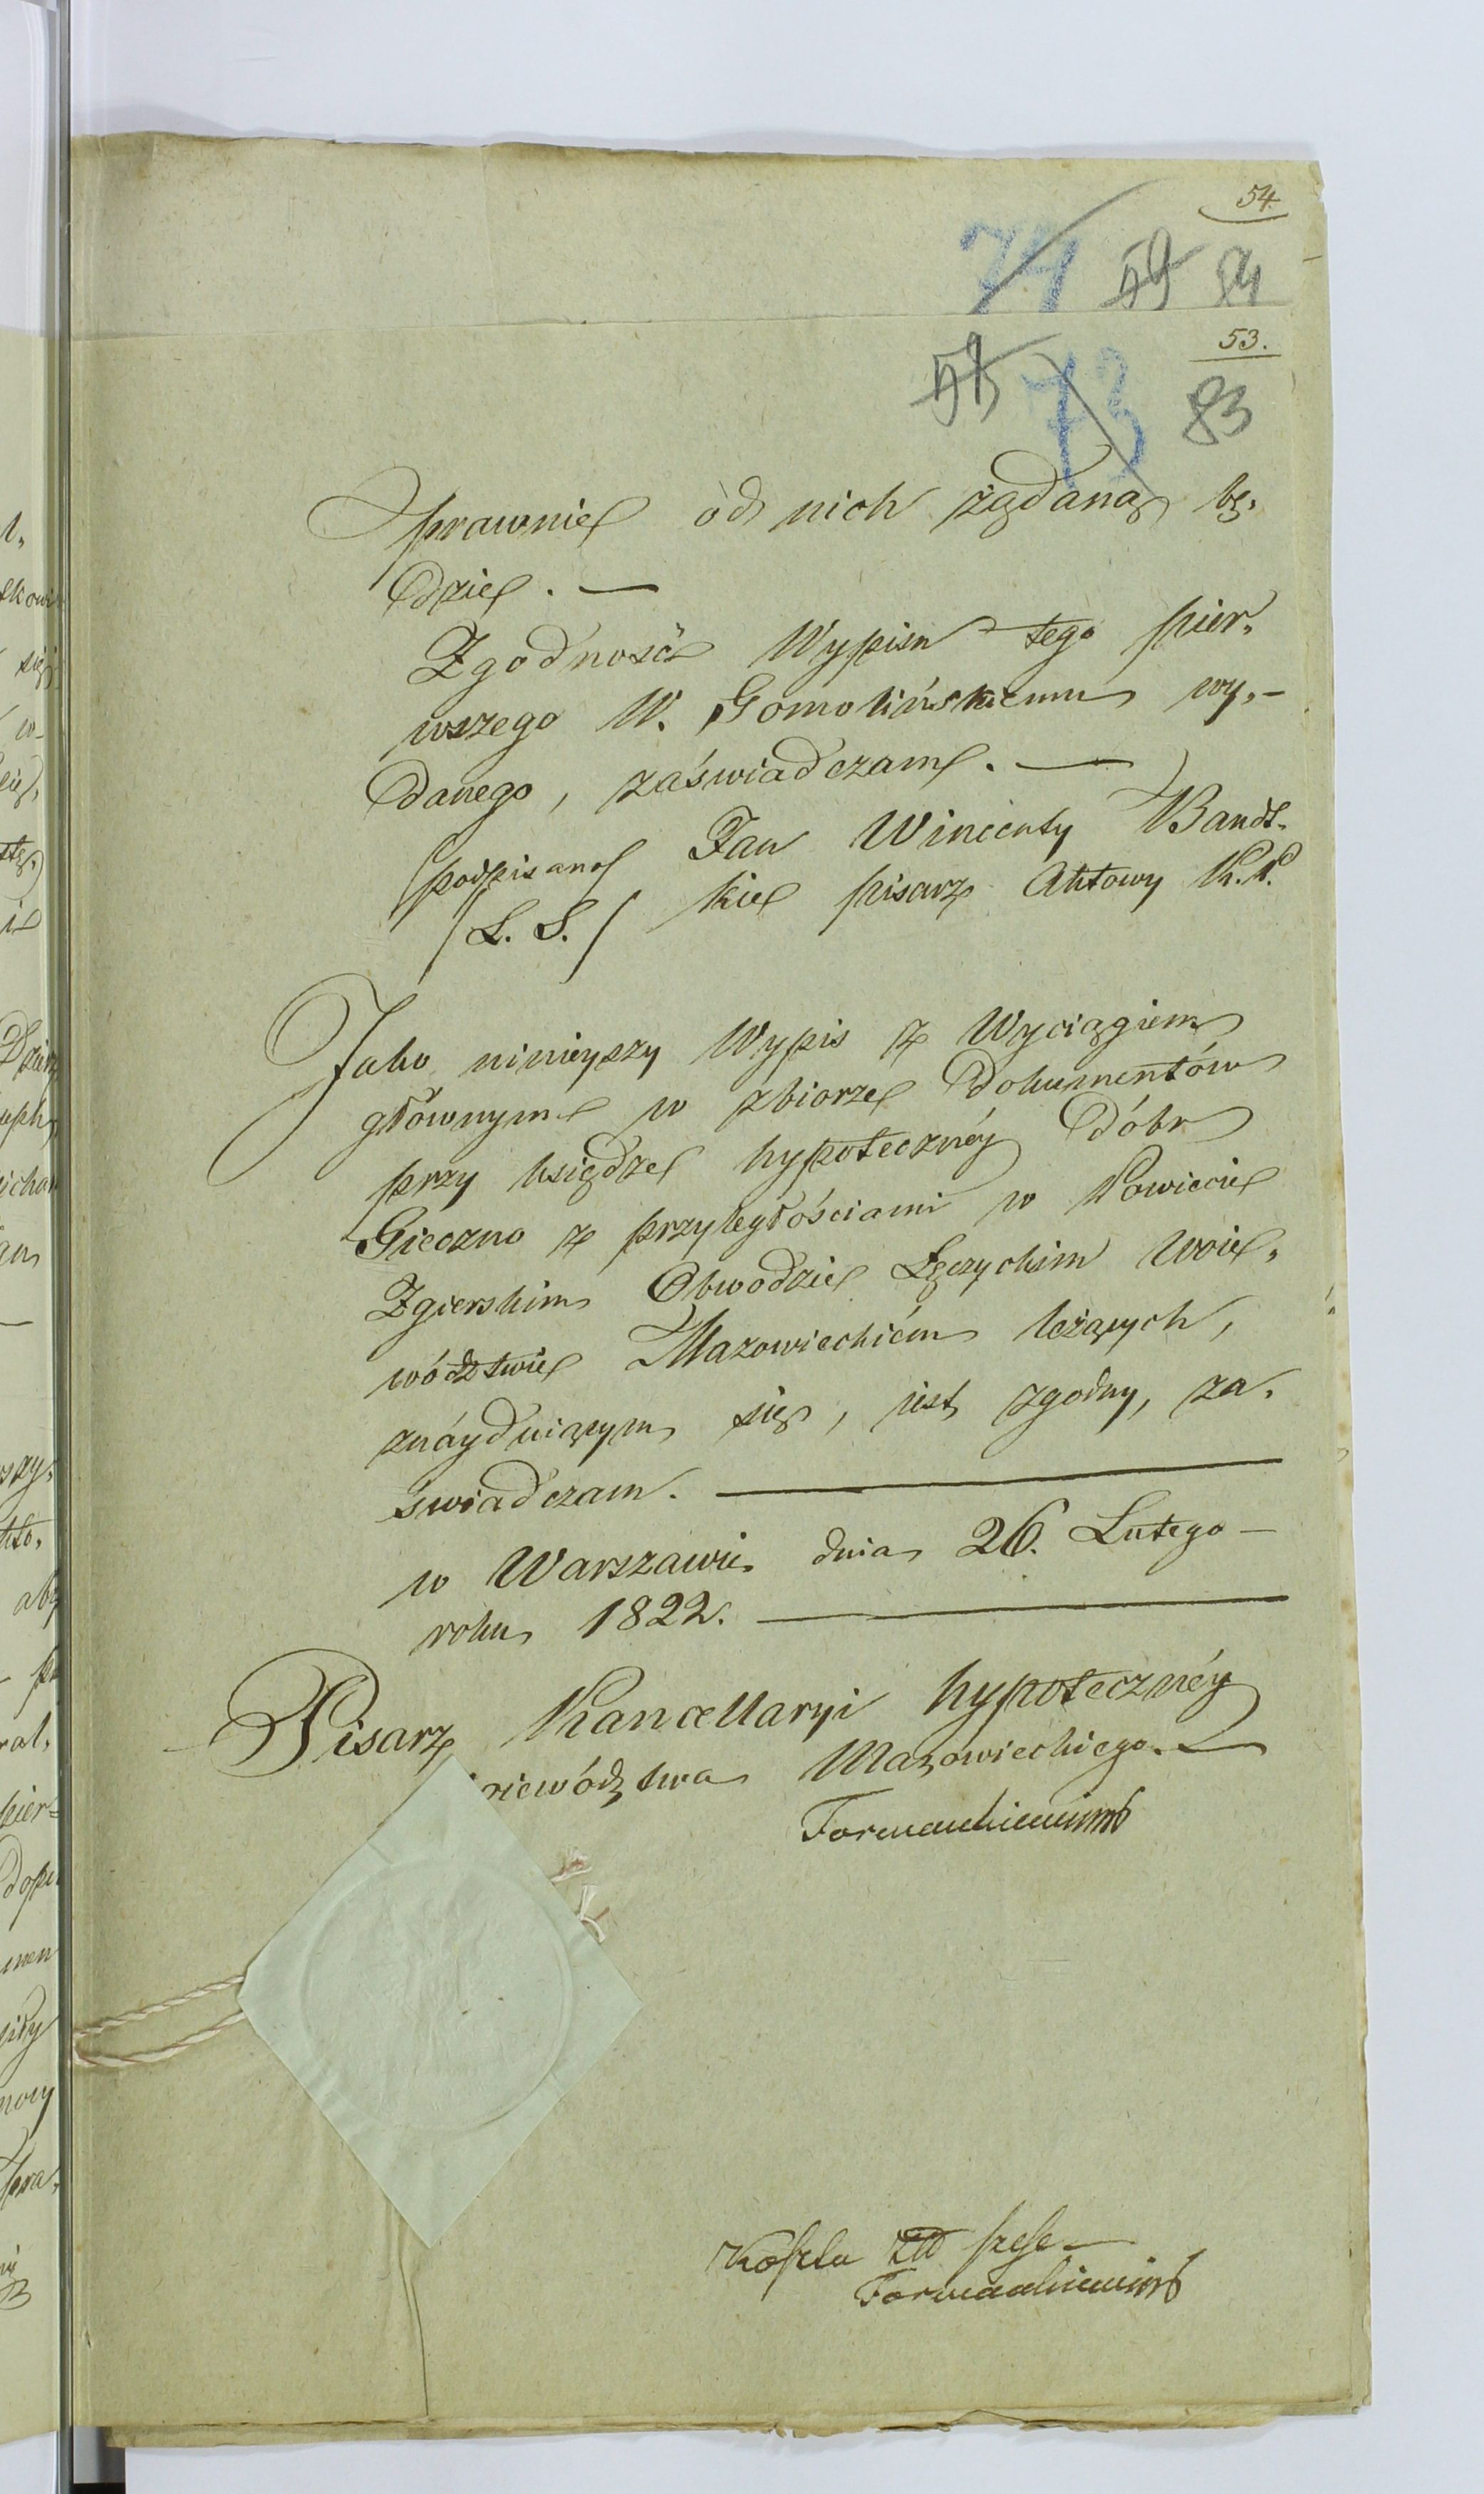 54.
74 59 84
53.
58 73 83
prawnie od nich żądaną bę„
dzie. —
Zgodność Wypisu tego pier„
wszego W. Gomolińskiemu wy„-
danego, zaświadczam. —
(podpisano) Jan Wincenty Bandt„
/L. S./ kie pisarz Aktowy K. P.
Jako ninieyszy Wypis z Wyciągiem
głównym w zbiorze Dokumentów
przy księdze hypoteczney Dóbr
Gieczno z przyległościami w Powiecie
Zgierskim Obwodzie Łęczyckim Woie„
wództwie Mazowieckiém leżących,
znáyduiącym się, iest zgodny, za„
świadczam. —
w Warszawie dnia 26. Lutego —
roku 1822. —
Pisarz Kancellaryi hypotecznéy
oiewództwa Mazowieckiego. —